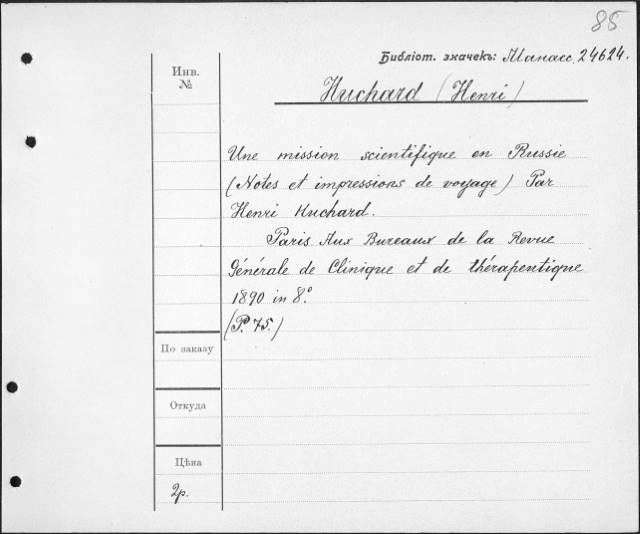 85
Библіот. значекъ: Манасс. 24624.
Инв.
№
Huchard (Henri)
Une mission scientifique en Russie
(Notes et impressions de voyage) Par
Henri Huchard.
Paris Aux Bureaux de la Revue
Générale de Clinique et de thérapeutique
1890 in 8.°
(P. 75.)
По заказу
Откуда
Цѣна
2р.